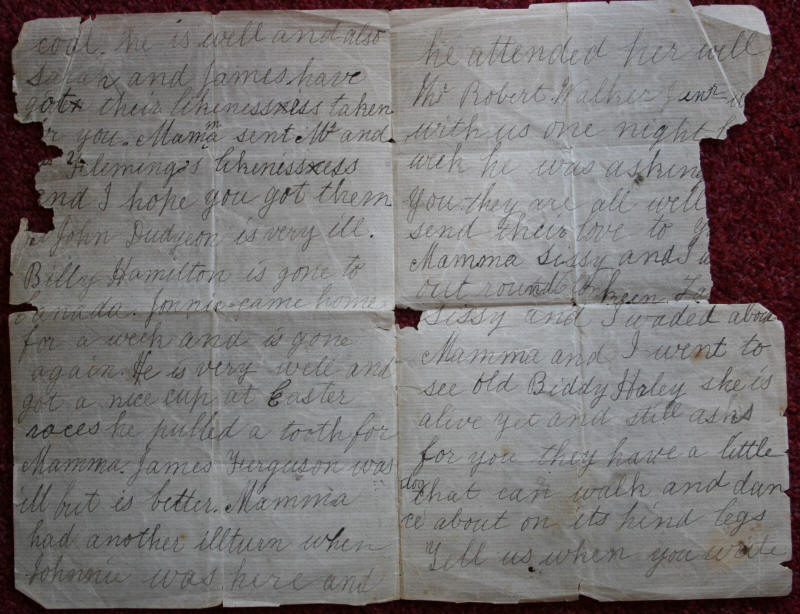 cold. he is well and also
Sarah and James have
got their likenessess taken
r you. Mama sent Mr and
Fleming's likenessess
nd I hope you got them
John Dudgeon is very ill.
Billy Hamilton is gone to
Canada. Jonnie came home
for a week and is gone
again. He is very well and
got a nice cup at Easter
races he pulled a tooth for
Mamma. James Ferguson was
ill but is better. Mamma
had another illturn when
Johnnie was here and
he attended her well
Mr Robert Walker Jenr
with us one night
week he was askin
you they are all well
send their love to y
Mamma Sissy and I
out round
Sissy and I waded about
Mamma and I went to
see old Biddy Haley she is
alive yet and still asks
for you they have a little
dog that can walk and dan
ce about on its hind legs
Tell us when you write